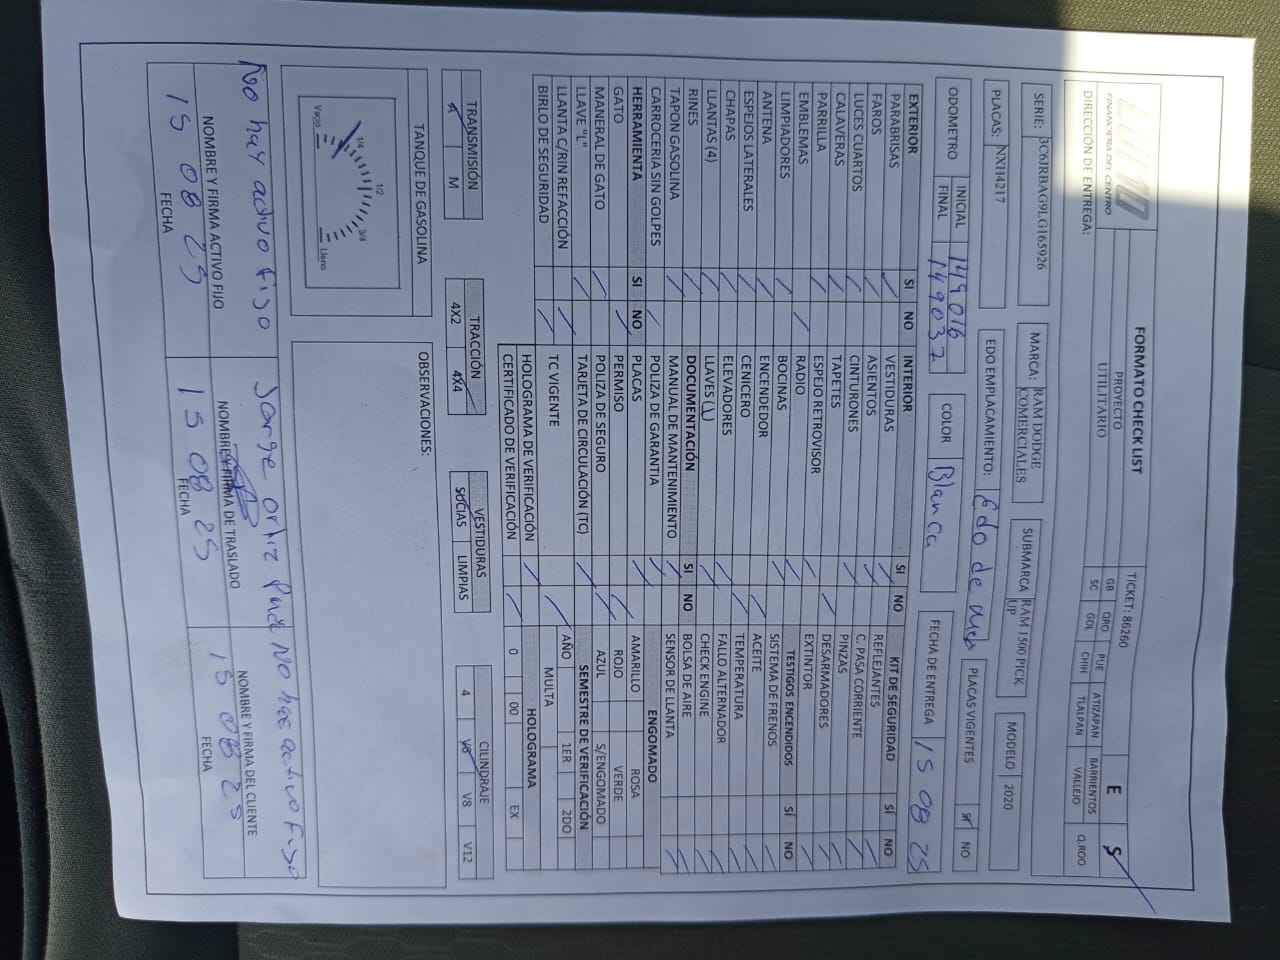 FINANCIERA DEL CENTRO
FORMATO CHECK LIST
PROYECTO
UTILITARIO
TICKET: 86260
E S
GB QRO PUE ATIZAPAN BARRIENTOS Q.ROO
SC GDL CHIH TLALPAN VALLEJO
DIRECCIÓN DE ENTREGA:
SERIE: 3C6JRBAG9LG165926
MARCA: RAM DODGE COMERCIALES
SUBMARCA RAM 1500 PICK UP
MODELO 2020
PLACAS: NXH4217
EDO EMPLACAMIENTO: Edo de Mex
PLACAS VIGENTES SI NO
ODOMETRO INICIAL 149016
FINAL 149037
COLOR Blanca
FECHA DE ENTREGA 15 08 25
EXTERIOR SI NO
PARABRISAS
FAROS
LUCES CUARTOS
CALAVERAS
PARRILLA
EMBLEMAS
LIMPIADORES
ANTENA
ESPEJOS LATERALES
CHAPAS
LLANTAS (4)
RINES
TAPON GASOLINA
CARROCERIA SIN GOLPES
HERRAMIENTA SI NO
GATO
MANERAL DE GATO
LLAVE "L"
LLANTA C/RIN REFACCIÓN
BIRLO DE SEGURIDAD
INTERIOR SI NO
VESTIDURAS
ASIENTOS
CINTURONES
TAPETES
ESPEJO RETROVISOR
RADIO
BOCINAS
ENCENDEDOR
CENICERO
ELEVADORES
LLAVES (1)
DOCUMENTACIÓN SI NO
MANUAL DE MANTENIMIENTO
POLIZA DE GARANTIA
PLACAS
PERMISO
POLIZA DE SEGURO
TARJETA DE CIRCULACIÓN (TC)
TC VIGENTE
HOLOGRAMA DE VERIFICACIÓN
CERTIFICADO DE VERIFICACIÓN
KIT DE SEGURIDAD SÍ NO
REFLEJANTES
C. PASA CORRIENTE
PINZAS
DESARMADORES
EXTINTOR
TESTIGOS ENCENDIDOS SÍ NO
SISTEMA DE FRENOS
ACEITE
TEMPERATURA
FALLO ALTERNADOR
CHECK ENGINE
BOLSA DE AIRE
SENSOR DE LLANTA
ENGOMADO
AMARILLO ROSA
ROJO VERDE
AZUL S/ENGOMADO
SEMESTRE DE VERIFICACIÓN
AÑO 1ER 2DO
MULTA
HOLOGRAMA
0 00 EX
TRANSMISIÓN
A M
TRACCIÓN
4X2 4X4
VESTIDURAS
SUCIAS LIMPIAS
CILINDRAJE
4 V6 V8 V12
TANQUE DE GASOLINA
Vacio 1/4 1/2 3/4 Lleno
OBSERVACIONES:
No hay activo fijo
NOMBRE Y FIRMA ACTIVO FIJO
15 08 25
FECHA
Jorge ortiz
NOMBRE Y FIRMA DE TRASLADO
15 08 25
FECHA
No hay activo fijo
NOMBRE Y FIRMA DEL CLIENTE
15 08 25
FECHA